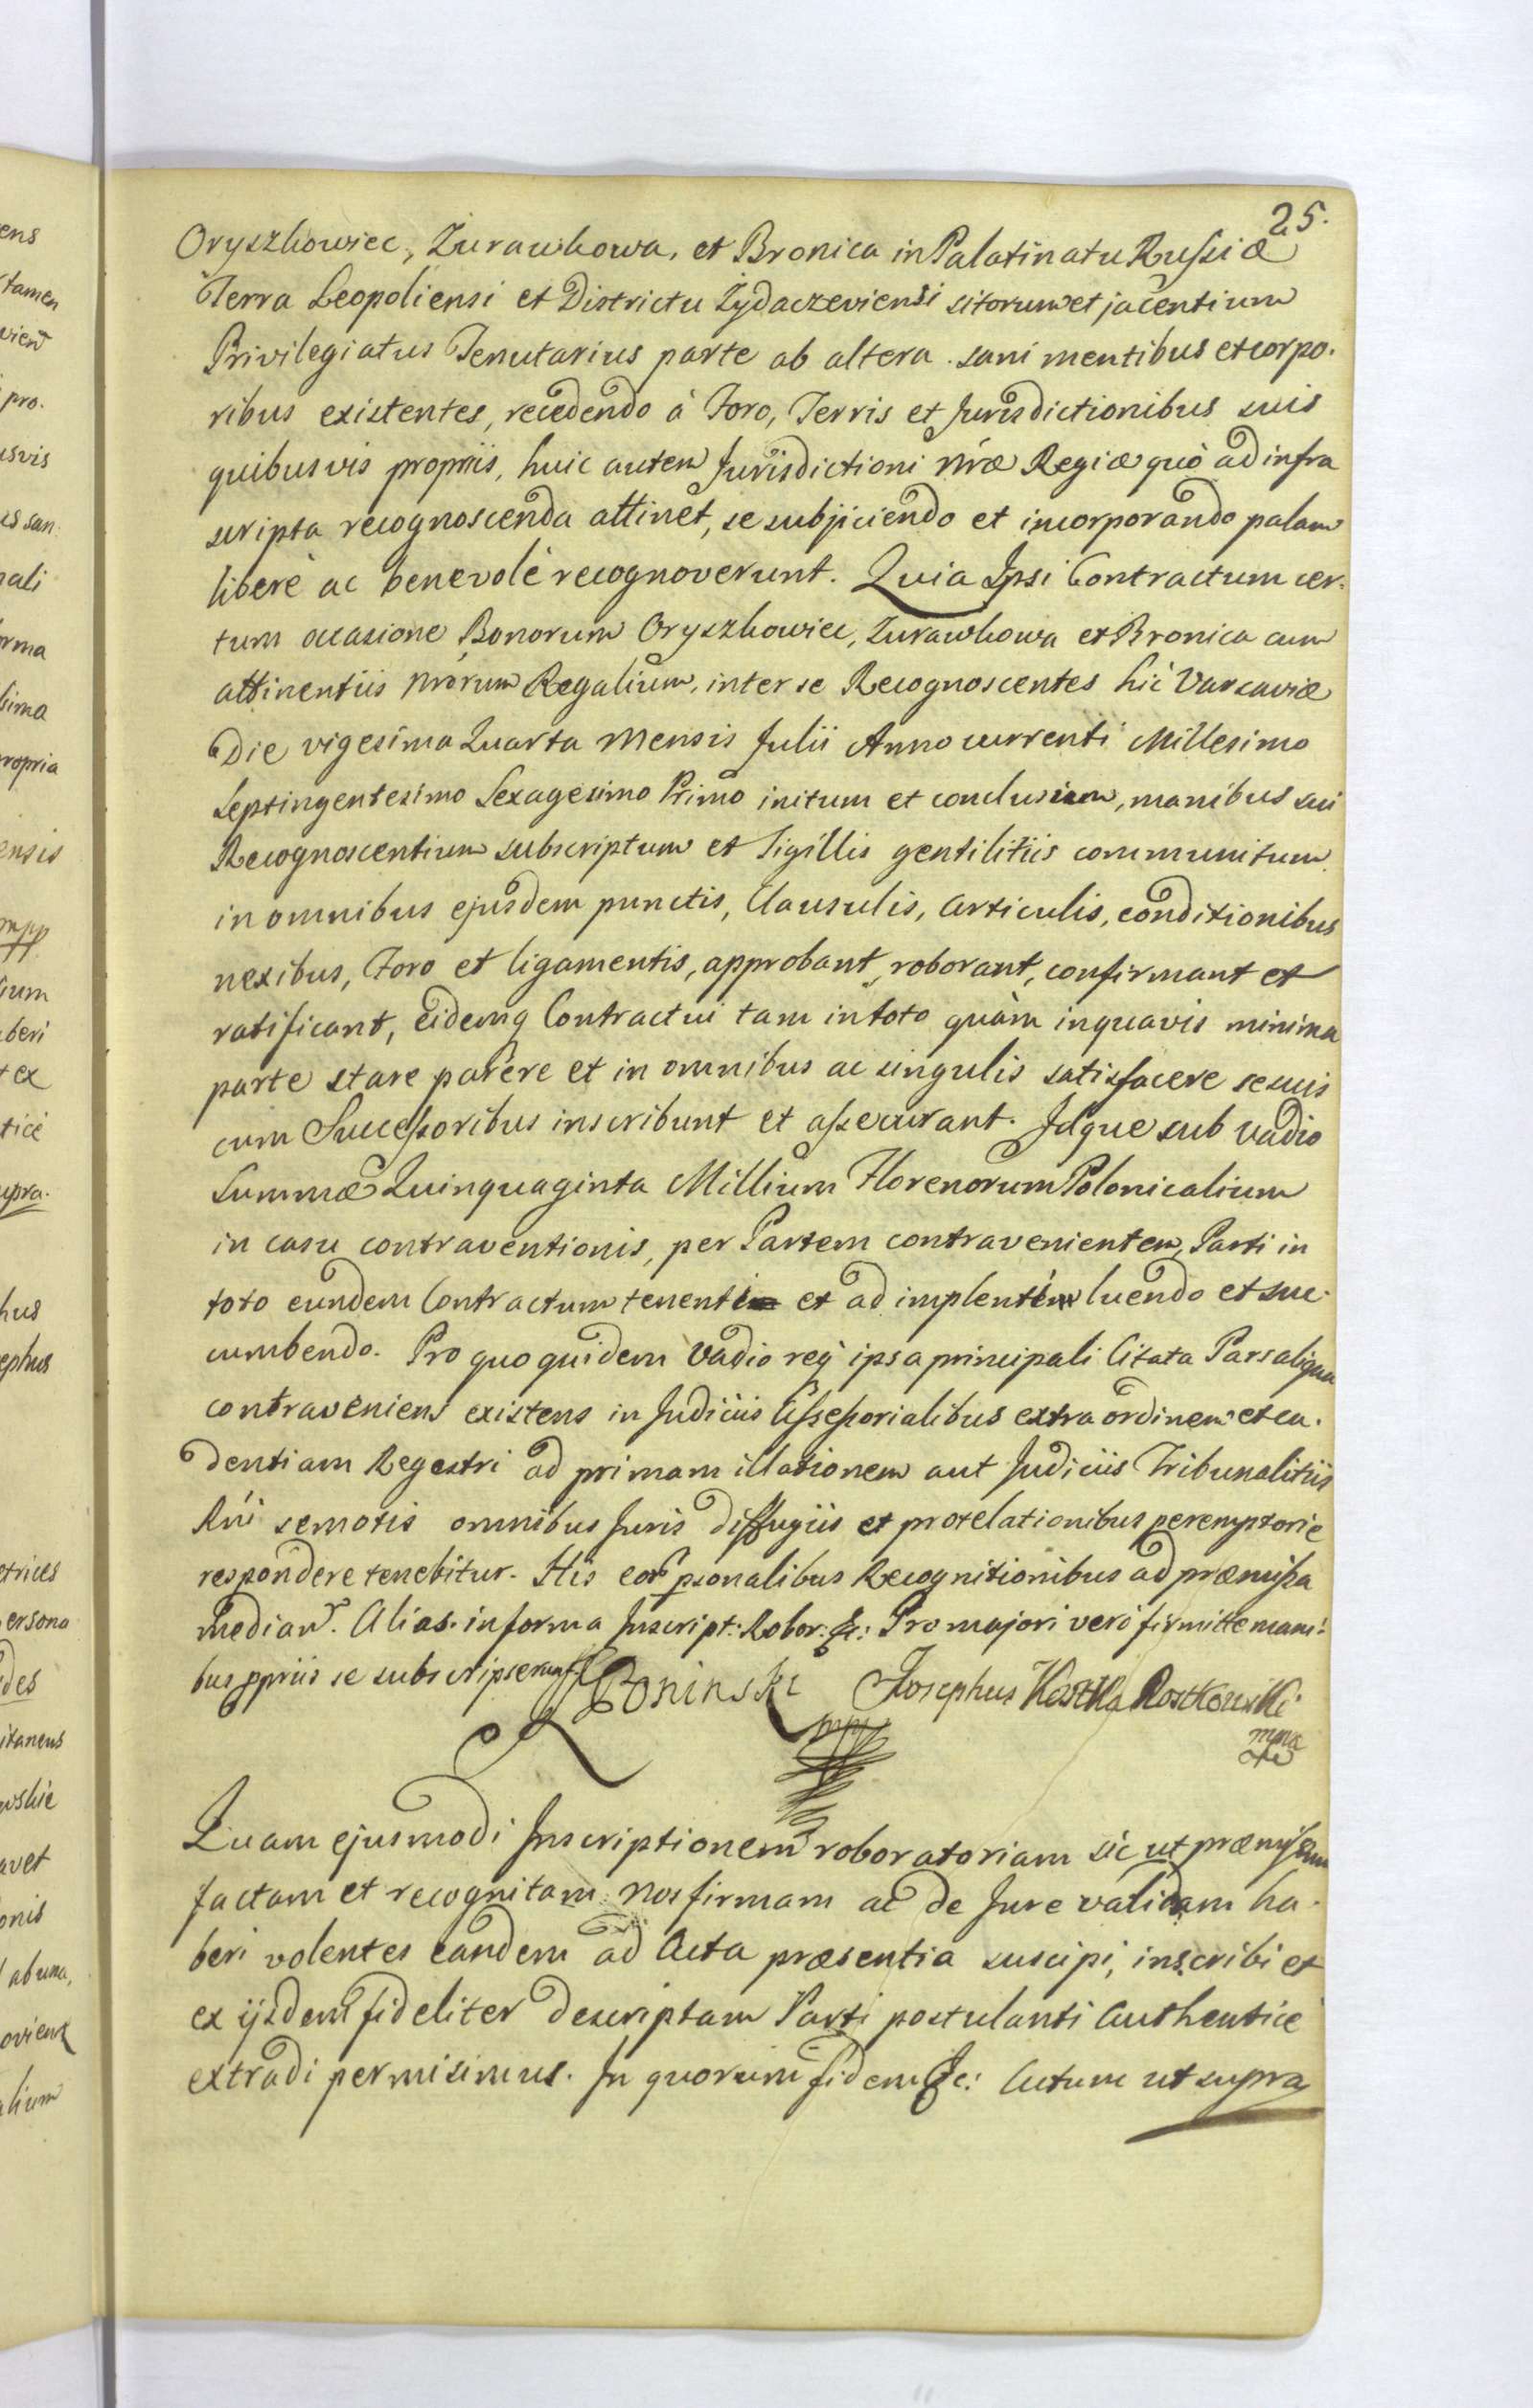 25.
Oryszkowiec, Zurawkowa, et Bronica in Palatinatu Russiæ
Terra Leopoliensi et Districtu Zydaczeviensi sitorum et jacentium
Privilegiatus Tenutarius parte ab altera. sani mentibus et corpo.
ribus existentes, recedendo à Foro, Terris et Jurisdictionibus suis
quibusvis propriis, huic autem Jurisdictioni nræ Regiæ quò ad infra
scripta recognoscenda attinet, se subjiciendo et incorporando palam
liberè ac benevolè recognoverunt. Quia Ipsi Contractum cer-
tum occasione Bonorum Oryszkowiec, Zurawkowa et Bronica cum
attinentiis nrorum Regalium, inter se Recognoscentes hic Varsaviæ
Die vigesima Quarta Mensis Julii Anno currenti Millesimo
Septingentesimo Sexagesimo Primo initum et conclusum, manibus sui
Recognoscentium subscriptum et Sigillis gentilitiis communitum
in omnibus ejusdem punctis, Clausulis, articulis, conditionibus
nexibus, Foro et ligamentis, approbant, roborant, confirmant et
ratificant, eidemq Contractui tam in toto quàm in quavis minima
parte stare parere et in omnibus ac singulis satisfacere se suis
cum Successoribus inscribunt et assecurant. Idque sub vadio
Summæ Quinquaginta Millium Florenorum Polonicalium
in casu contraventionis, per Partem contravenientem, Parti in
toto eundem Contractum tenenti et adimplenti luendo et suc.
cumbendo. Pro quo quidem Vadio req ipsa principali Citata Pars aliqua
contraveniens existens in Judiciis Assessorialibus extra ordinem et ca.
dentiam Regestri ad primam illationem aut Judiciis Tribunalitiis
Rni semotis omnibus Juris diffugiis et protelationibus peremptorie
respondere tenebitur. His eor psonalibus Recognitionibus ad præmissa
median. Alias. in forma Inscript: Robor: &: Pro majori verò firmitte mani:
bus ppriis se subscripserunt. Poninski Josephus Kostka Rostkowski
mpp
mpp
Quam ejusmodi Inscriptionem roboratoriam sic ut præmissum
factam et recognitam nos firmam ac de Jure validam ha.
beri volentes eandem ad Acta præsentia suscipi, inscribi et
ex ijsdem fideliter descriptam Parti postulanti Authenticè
extradi permisimus. In quorum fidem &c: Actum ut supra